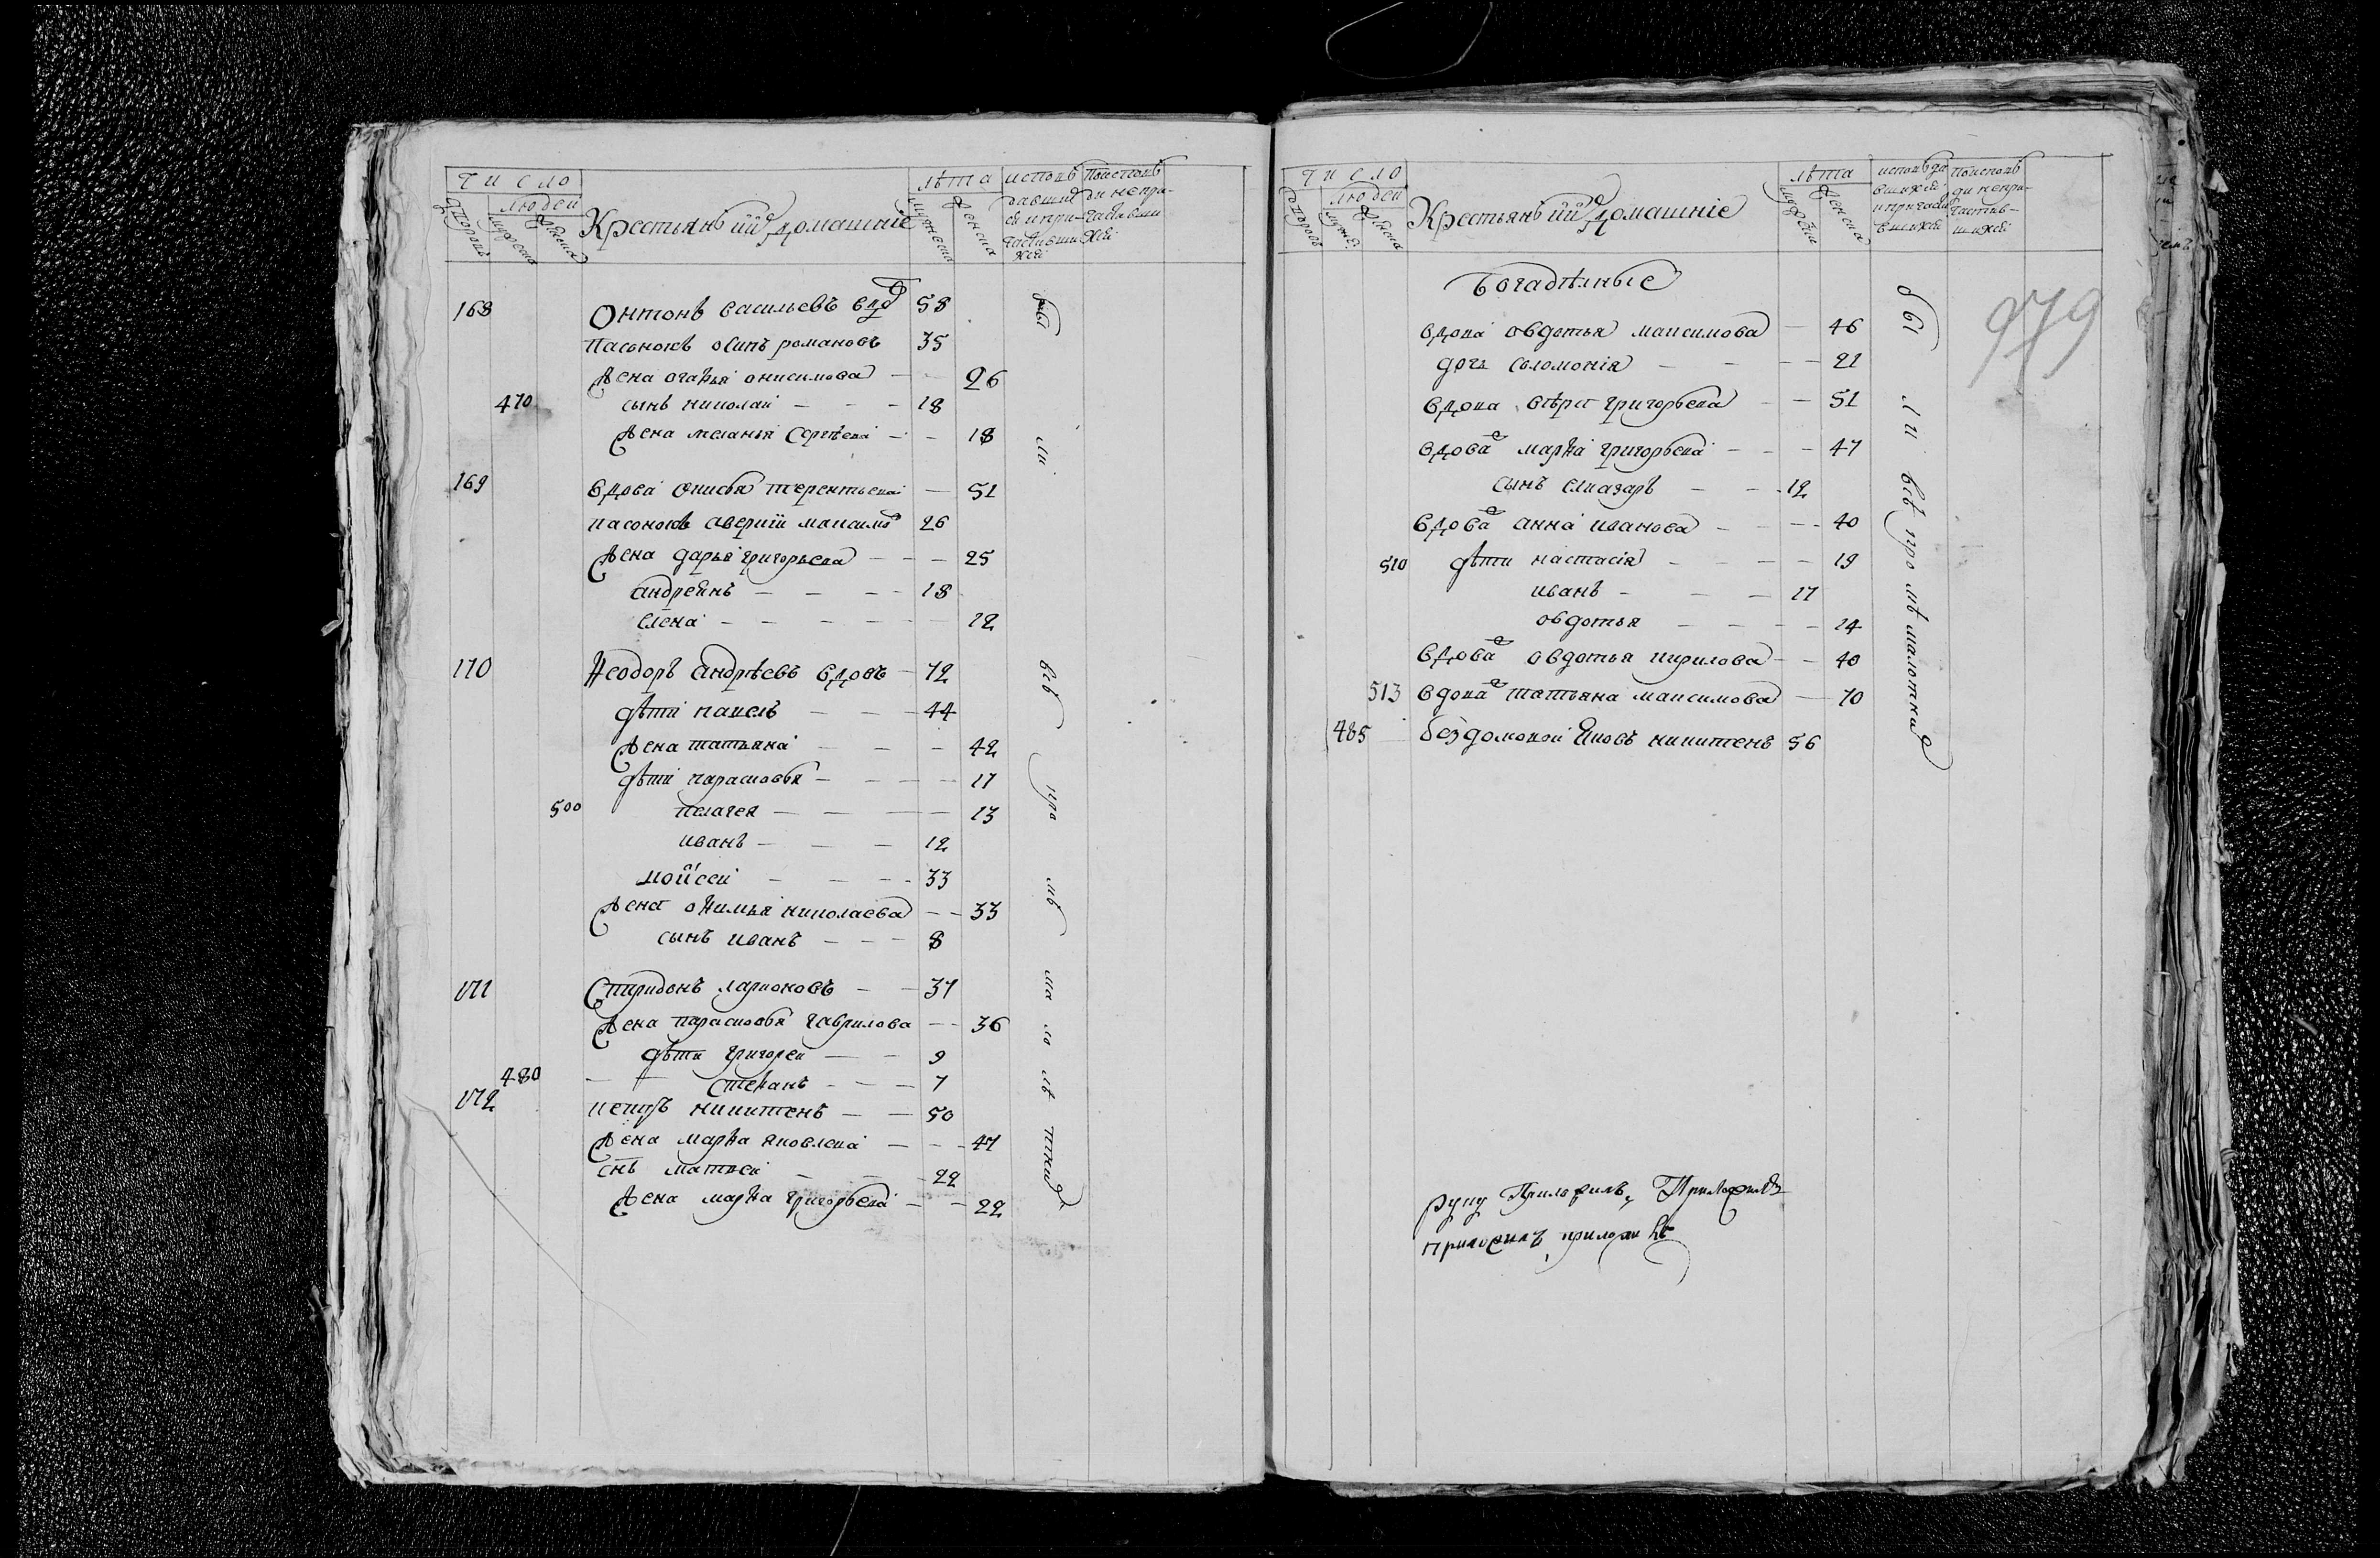 число
людей
дворовъ
мужеска
женска
Крестьянъ ий домашніе
лѣта
мужеска
женска
исповѣ
давших
ся и при-
частивши
хся
поисповѣ
ди непри-
частивши
хся
168 Онтонъ васильевъ вдо 58
пасынокъ осипъ романовъ 35
жена огафья онисимова 26
470 сынъ николаи 18
жена меланья Сергѣева 18
169 вдова онисья терентьева 51
пасонокъ аверкіи максимо 26
жена дарья григорьева 25
андреянъ 18
елена 12
170 Ѳеодоръ андрѣевъ вдовъ 72
дѣти павелъ 44
жена татьяна 42
дѣти парасковья 17
500 пелагея 13
иванъ 12
моисеи 33
жена офимья николаева 33
сынъ иванъ 8
171 Спиридонъ ларионовъ 37
жена парасковья гаврилова 36
дѣти григореи 9
480 стефанъ 7
172 петръ никитенъ 50
жена марѳа яковлева 47
снъ матвеи 22
жена марѳа григорьева 22
бы ли всѣ про мѣ ма ло лѣ тних
число
людей
дворовъ
мужес
женска
Крестьянъ ий домашніе
лѣта
мужеска
женска
исповѣда
вшихся
и причасти
вшихся
поисповѣ
ди непри-
частив-
шихся
979
Богадѣлныe
вдова овдотья максимова 46
дочь соломонія 21
вдова вѣра григорьева 51
вдова марѳа григорьева 47
сынъ елиазаръ 12
вдова анна иванова 40
510 дѣти настасія 19
иванъ 17
овдотья 14
вдова овдотья кирилова 40
513 вдова татьяна максимова 70
485 бездомовои Яковъ никитенъ 56
бы ли всѣ про мѣ малотних
руку Приложилъ Приложилъ
Приложилъ